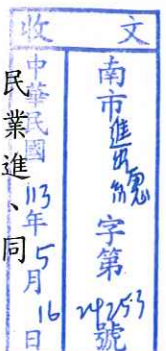 收文
南市進出總字第24253號
中華民國113年5月16日
民業進、同